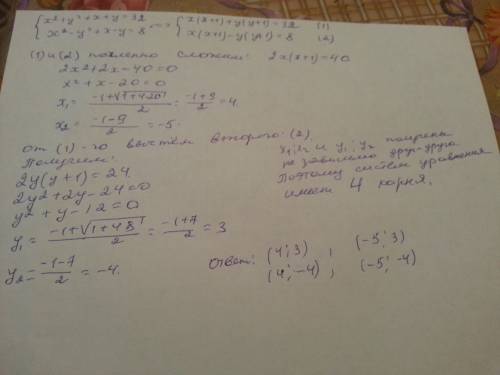 { x²+y²+x+y=32 <=> { x(x+1)+y(y+1)=32 (1)
{ x²-y²+x-y=8 { x(x+1)-y(y+1)=8 (2)
(1) и (2) почленно сложим: 2x(x+1)=40
2x²+2x-40=0
x²+x-20=0
x₁ = (-1+√(1+4·20))/2 = (-1+9)/2 = 4.
x₂ = (-1-9)/2 = -5.
от (1)-го вычтем второго: (2)
Получим:
2y(y+1)=24
2y²+2y-24=0
y²+y-12=0
y₁ = (-1+√(1+48))/2 = (-1+7)/2 = 3
y₂ = (-1-7)/2 = -4.
x₁; x₂ и y₁; y₂ получены
не зависимо друг-друга
Поэтому систем уравнения
имеет 4 корня.
Ответ: (4; 3) , (-5; 3)
(4; -4) , (-5; -4)